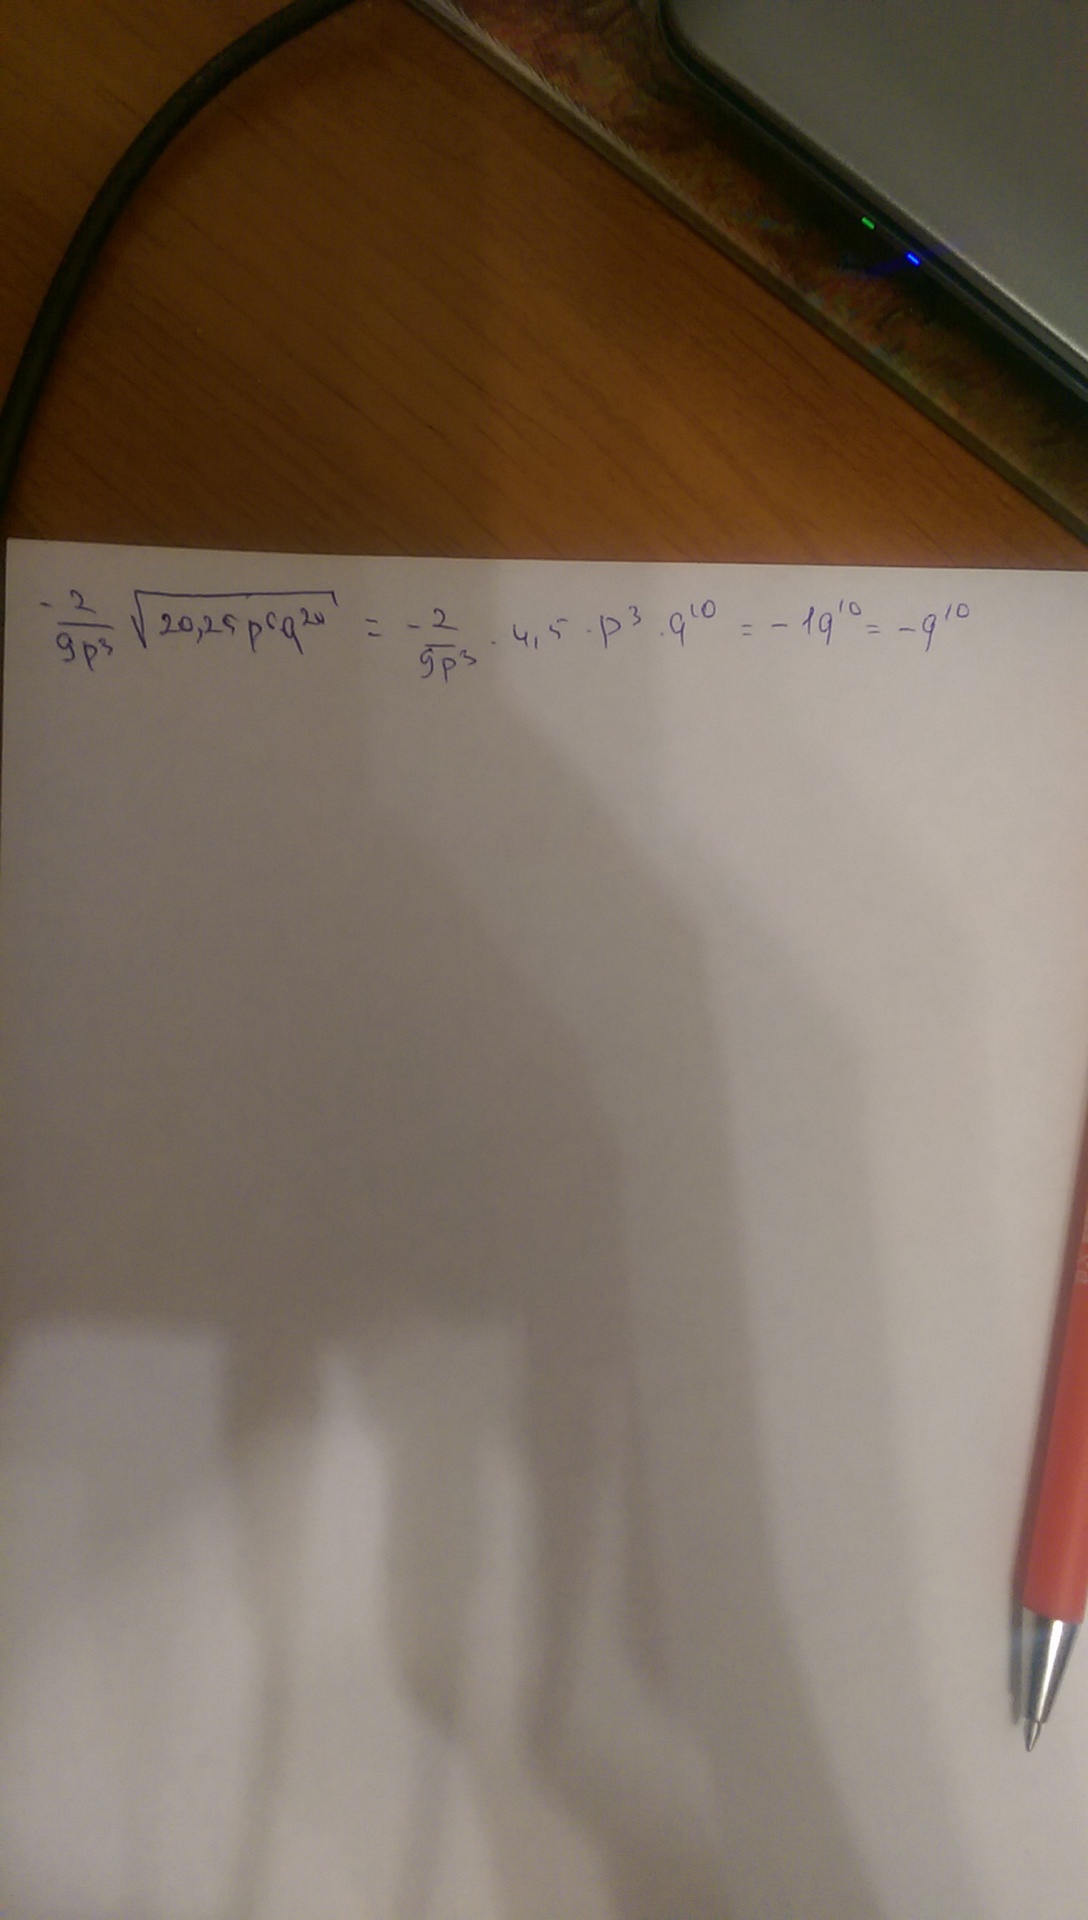 -2/9p³ √20,25p⁶q²⁰ = -2/9p³ · 4,5 · p³ · q¹⁰ = -1q¹⁰ = -q¹⁰